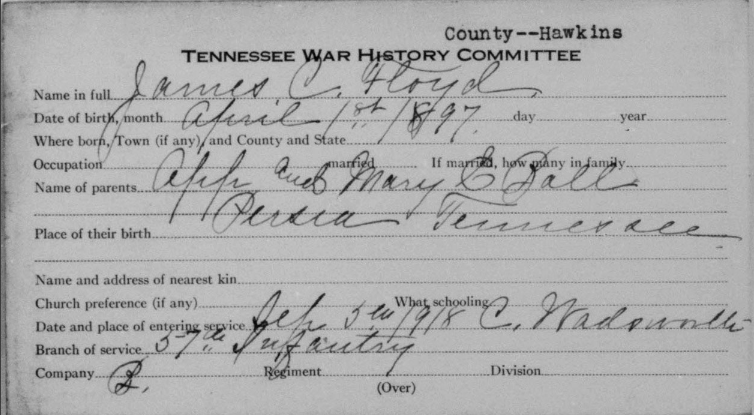 County--Hawkins
TENNESSEE WAR HISTORY COMMITTEE
Name in full James C. Floyd
Date of birth, month April 1st 1897 day year
Where born, Town (if any), and County and State
Occupation married If married, how many in family
Name of parents and Mary E
Persia Tennessee
Place of their birth
Name and address of nearest kin
Church preference (if any) What schooling
Date and place of entering service Sep 5th 1918 C. Wadsworth
Branch of service 57th Infantry
Company Regiment Division
(Over)